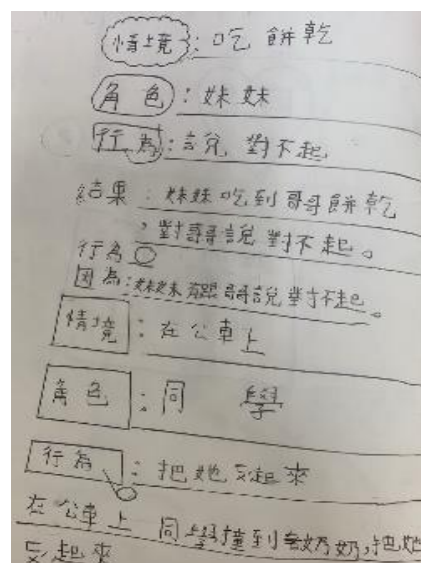 情境：吃 餅乾
角色：妹妹
行為：說 對不起
結果：妹妹吃到哥哥餅乾
，對哥哥說 對不起。
行為○
因為：妹妹有跟哥哥說對不起。
情境：在公車上
角色：同 學
行為：把她 起來
在公車上 同學撞到 奶奶，把她
起來